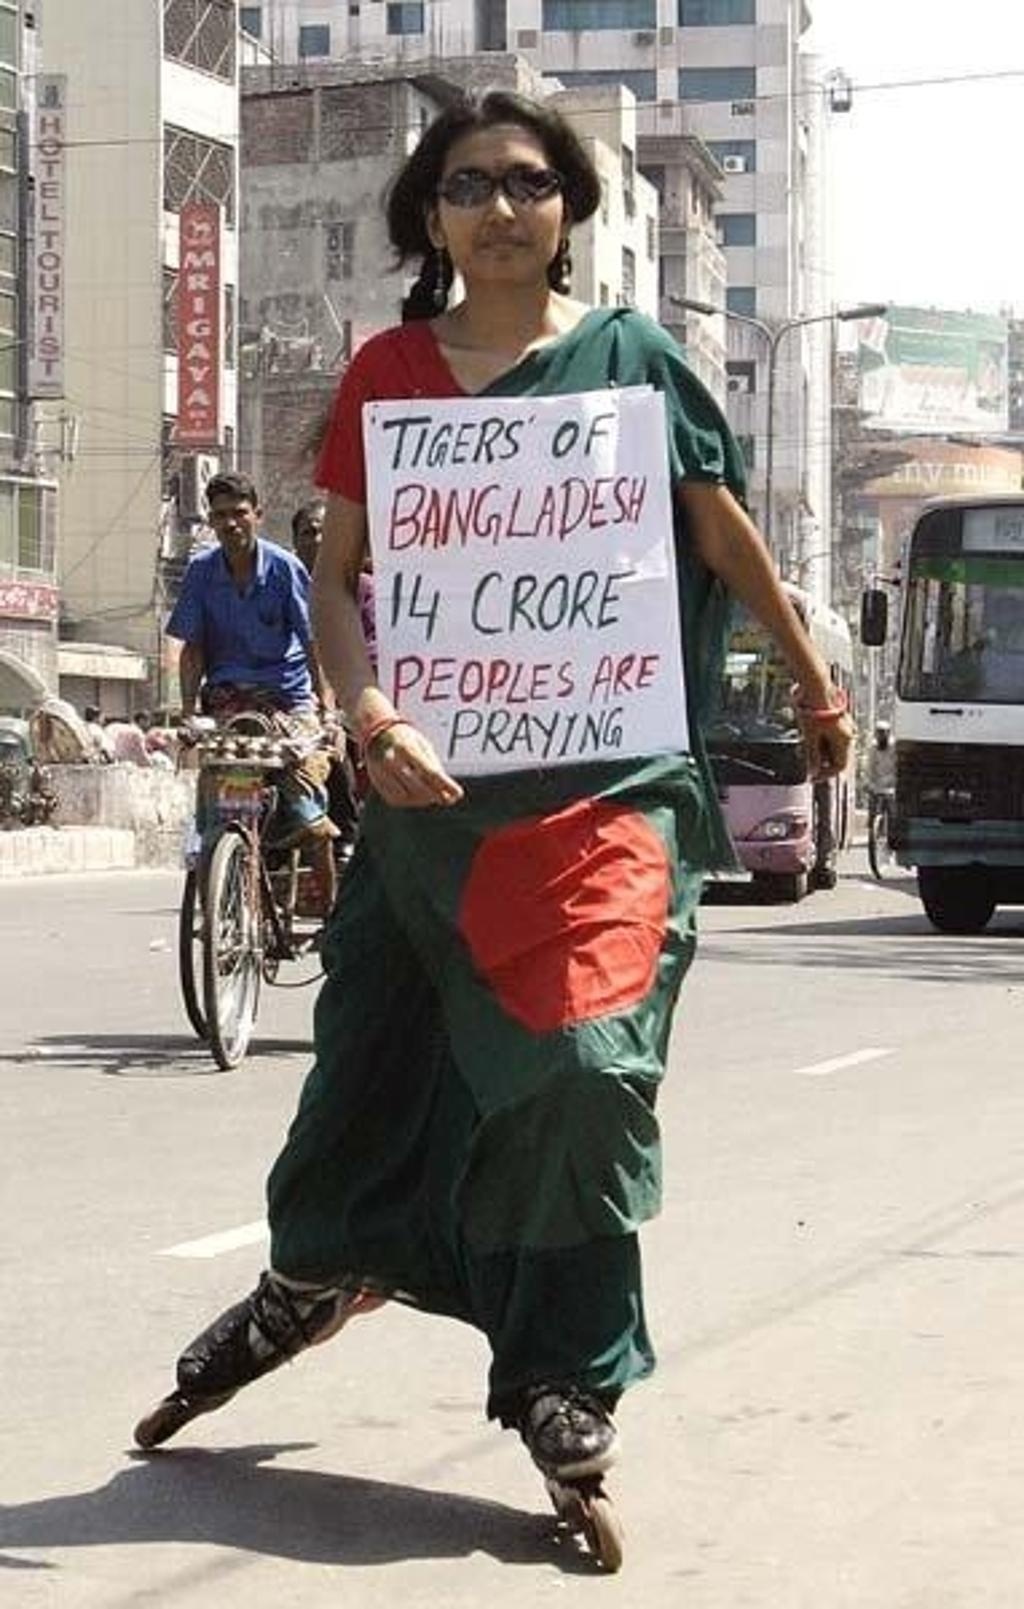 HOTEL TOURIST
MRIGAYA
'TIGERS' OF
BANGLADESH
14 CRORE
PEOPLES ARE
PRAYING